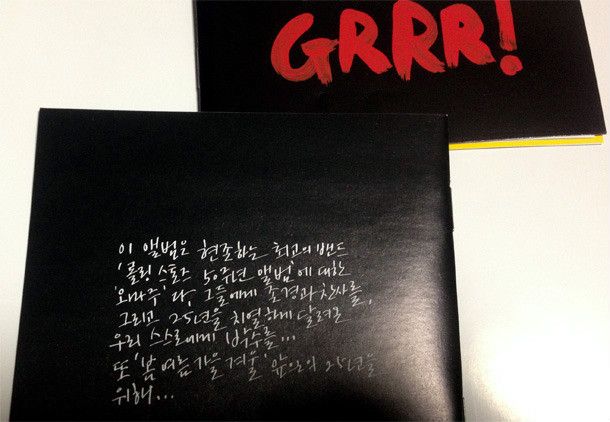 GRRR!
이 앨범은 현존하는 최고의 밴드
'롤링 스톤즈 50주년 앨범'에 대한
'오마주'다, 그들에게 존경과 찬사를,
그리고 25년을 치열하게 달려온
우리 스스로에게 박수를...
또 '봄 여름 가을 겨울' 앞으로의 25년을
위해...